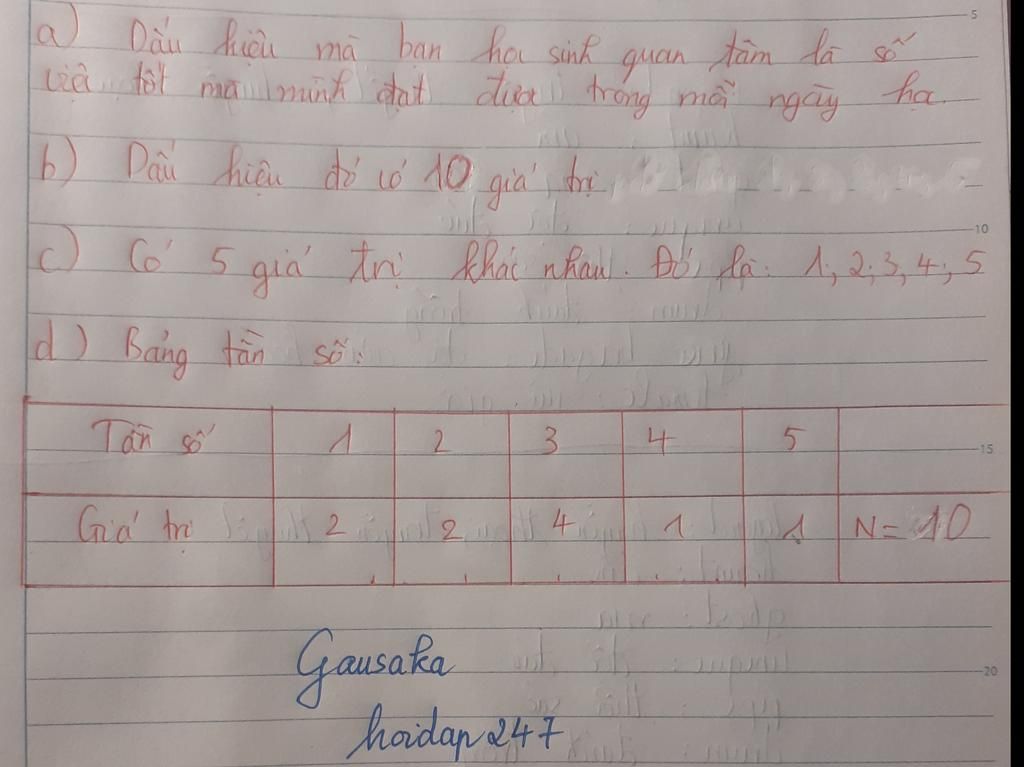 a) Dấu hiệu mà bạn học sinh quan tâm là số
việc tốt mà mình đạt được trong mỗi ngày học
b) Dấu hiệu đó có 10 giá trị
c) Có 5 giá trị khác nhau. Đó là: 1; 2; 3; 4; 5
d) Bảng tần số:
Tần số 1 2 3 4 5
Giá trị 2 2 4 1 1 N = 10
Gausaka
hoidap247
5
10
15
20